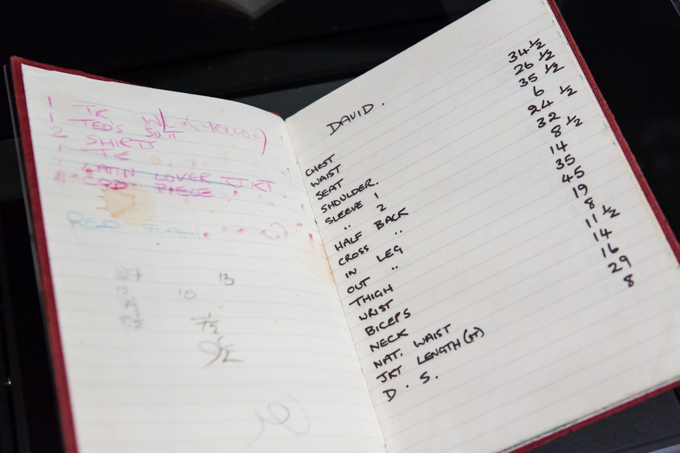 1
1 TED'S SUIT
2 SHIRTS
1
1 LATIN LOVER JKT
COD PIECE
RED FLASH
13
15
7½
9½
DAVID.
CHEST 34 ½
WAIST 26 ½
SEAT 35 ½
SHOULDER. 6
SLEEVE 1 24 ½
" 2 32
HALF BACK 8 ½
CROSS " 14
IN LEG 35
OUT " 45
THIGH 19
WRIST 8
BICEPS 11 ½
NECK 14
NAT. WAIST 16
JKT LENGTH 29
D. S. 8